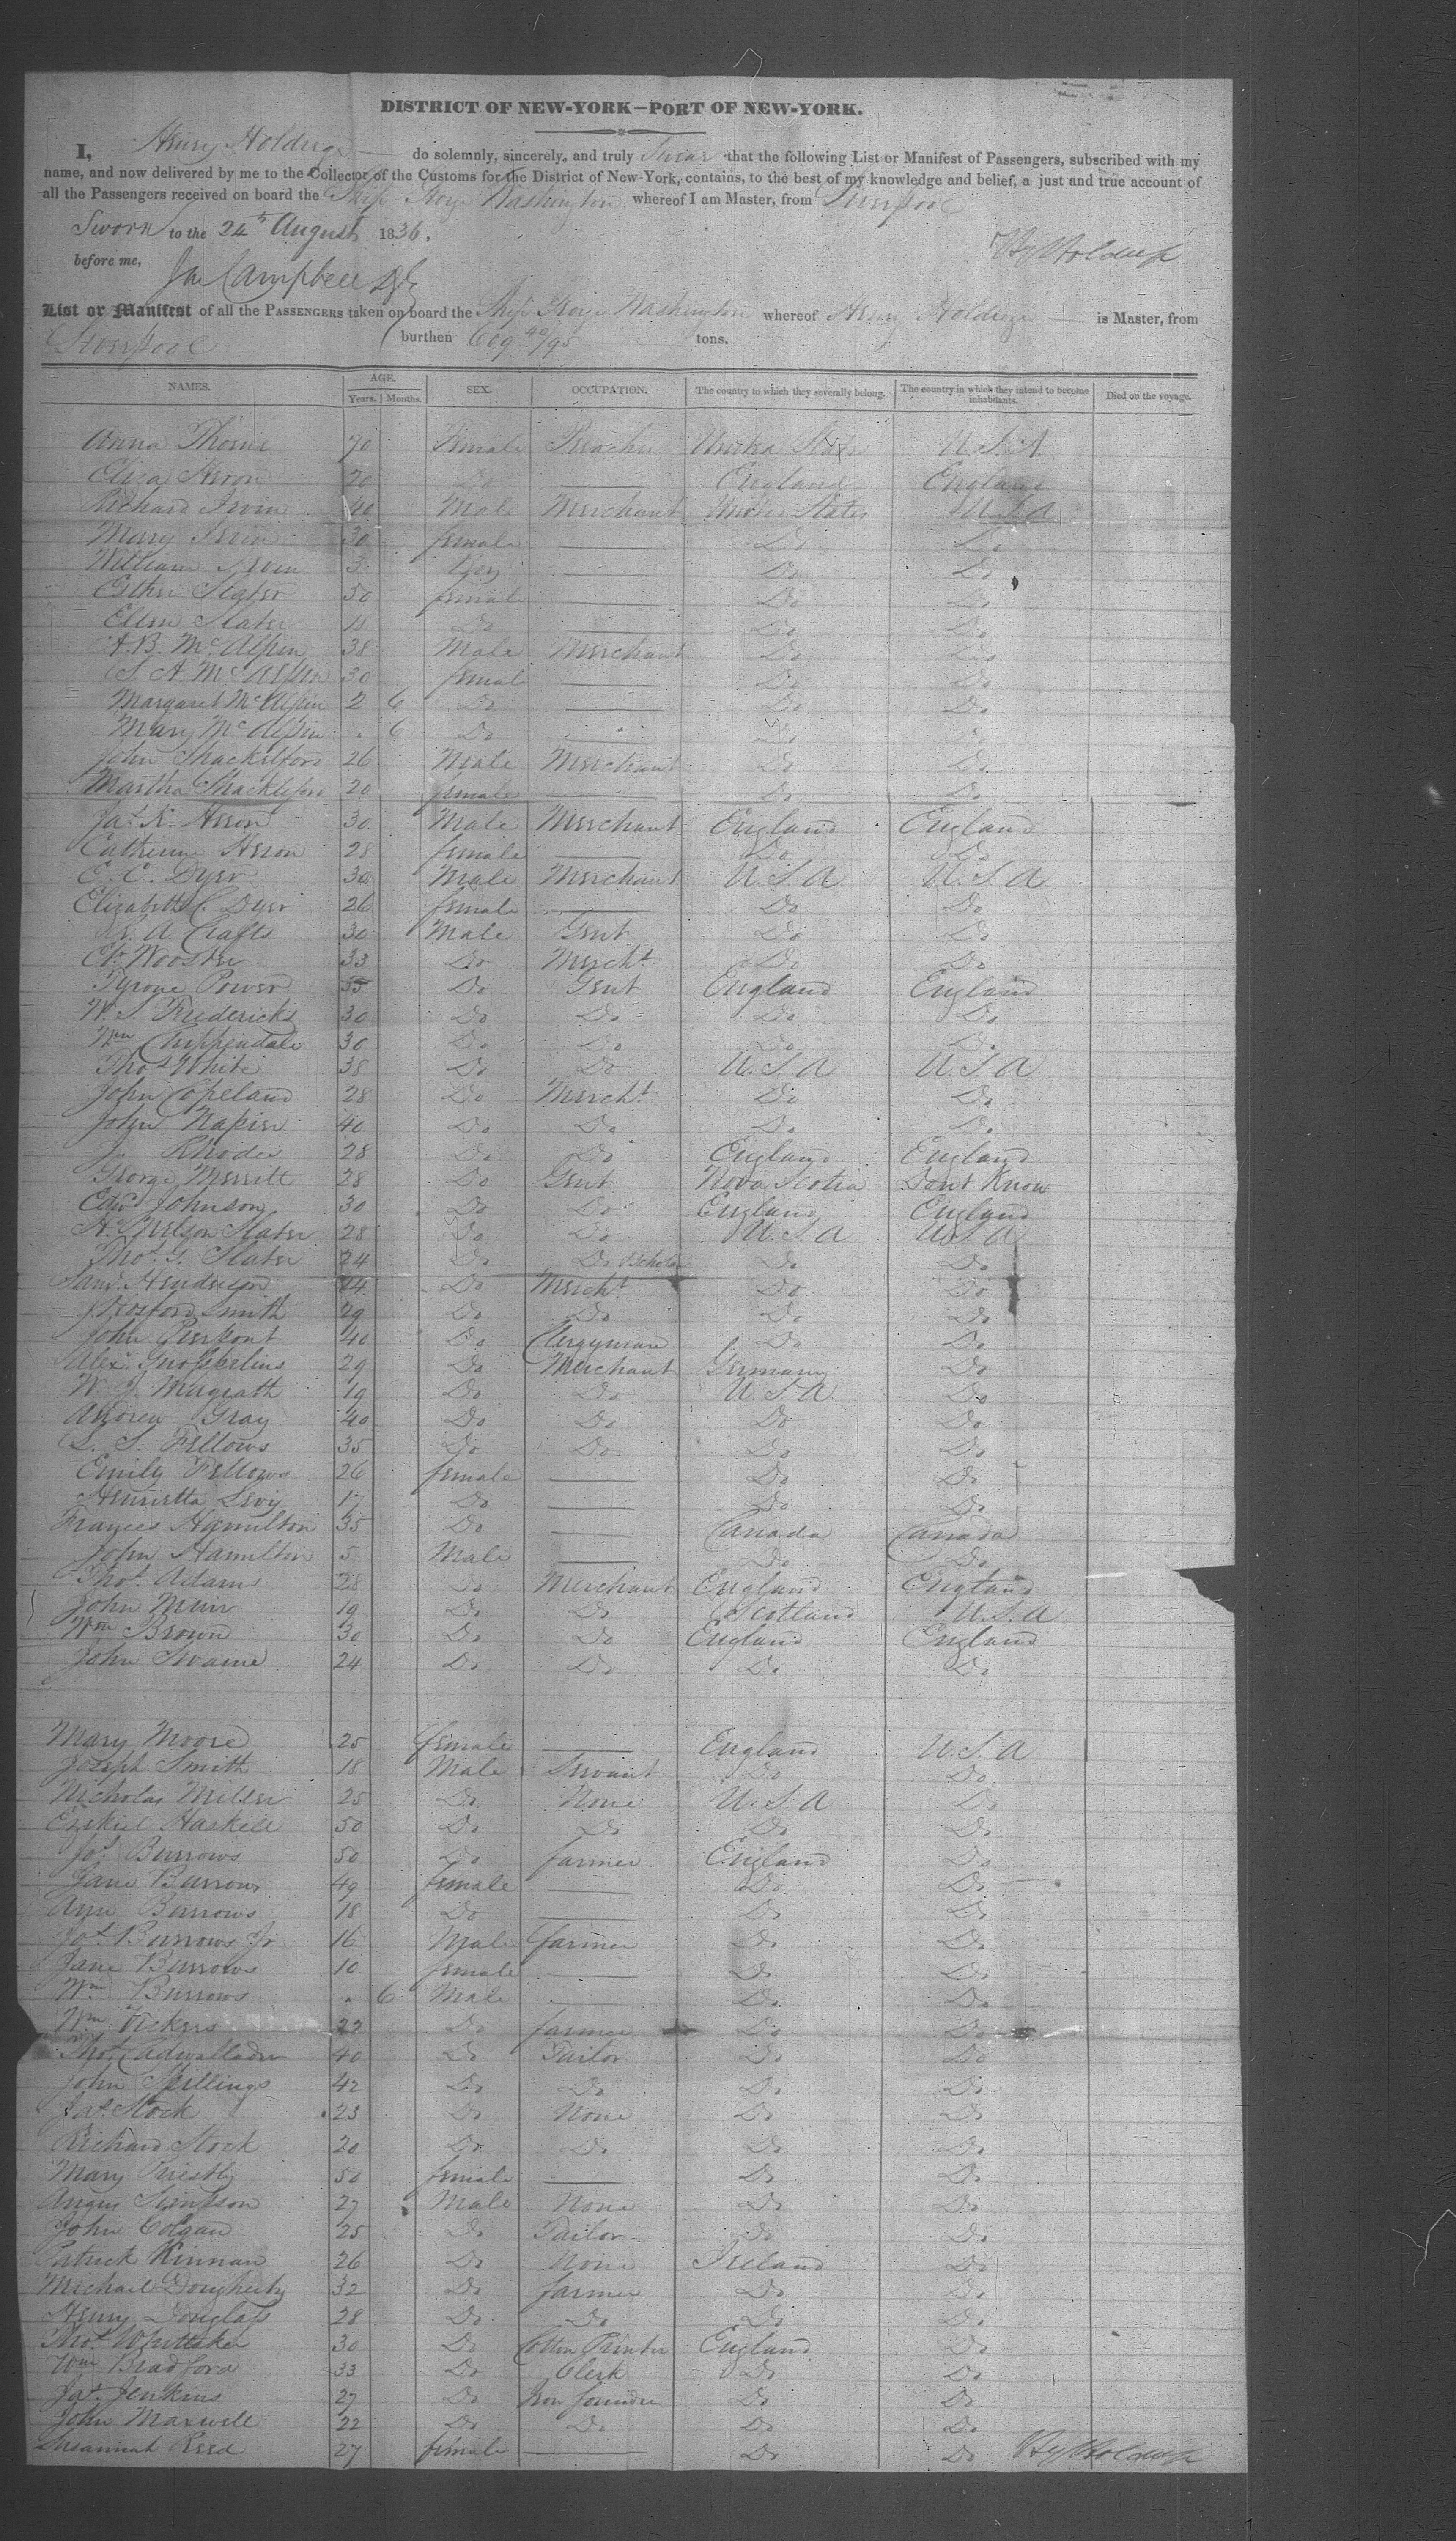 DISTRICT OF NEW-YORK—PORT OF NEW-YORK.
I, Henry Holdrege do solemnly, sincerely, and truly Swear that the following List or Manifest of Passengers, subscribed with my
name, and now delivered by me to the Collector of the Customs for the District of New-York, contains, to the best of my knowledge and belief, a just and true account of
all the Passengers received on board the Ship George Washington whereof I am Master, from Liverpool
Sworn to the 24th August 1836.
Hy Holdrege
before me,
Campbell
List or Manifest of all the PASSENGERS taken on board the Ship George Washington whereof Henry Holdrege is Master, from
Liverpool burthen 609 40/95 tons.
NAMES. AGE. Years. Months. SEX. OCCUPATION. The country to which they severally belong. The country in which they intend to become inhabitants. Died on the voyage.
Anna Thorne 70 Female Preacher United States U.S.A
Eliza Heron 20 Do England England
Richard Irvin 40 Male Merchant United States U S A
Mary Irvin 30 female Do Do
William Irvin 3 Boy Do Do
Esther Slater 50 female Do Do
Ellen Slater 18 Do Do Do
A.B. McAlpin 38 Male Merchant Do Do
S. A McAlpin 30 female Do Do
Margaret McAlpin 2 6 Do Do Do
Mary McAlpin . 6 Do Do Do
John Shackelford 26 Male Merchant Do Do
Martha Shackleford 20 female Do Do
Jas. K. Heron 30 Male Merchant England England
Catherine Heron 28 female Do Do
C. C. Dyer 30 Male Merchant U.S.A U.S.A
Elizabeth C. Dyer 26 female Do Do
A. Crafts 30 Male Gent Do Do
Wooster 33 Do Mercht Do Do
Tyrone Power 35 Do Gent England England
W. S. Fredericks 30 Do Do Do Do
Wm Chippendale 30 Do Do Do Do
Thos White 38 Do Do U.S.A U.S.A
John Copeland 28 Do Mercht Do Do
John Napier 40 Do Do Do Do
J Rhodes 28 Do Do England England
George Merritt 28 Do Gent Nova Scotia Dont Know
Edwd Johnson 30 Do Do England England
H. Nelson Slater 28 Do Do U.S.A U.S.A
Thos. G. Slater 24 Do Do Scholar Do Do
Saml. Henderson 24 Do Mercht Do Do
J Hosford Smith 29 Do Do Do Do
John Pierpont 40 Do Clergyman Do Do
Alexr. 29 Do Merchant Germany Do
W. J. Magrath 19 Do Do U.S.A Do
Andrew Gray 40 Do Do Do Do
L. S. Fellows 35 Do Do Do Do
Emily Fellows 26 female Do Do
Henrietta Levy 17 Do Do Do
Frances Hamilton 35 Do Canada Canada
John Hamilton 5 Male Do Do
Thos. Adams 28 Do Merchant England England
John Muir 19 Do Do Scotland U.S.A
Wm Brown 30 Do Do England England
John Swaine 24 Do Do Do Do
Mary Moore 25 female England U.S.A
Joseph Smith 18 Male Servant Do Do
Nicholas Miller 25 Do None U.S.A Do
Ezekiel Haskell 50 Do Do Do Do
Jos. Burrows 50 Do farmer England Do
Jane Burrows 49 female Do Do
Ann Burrows 18 Do Do Do
Jos. Burrows Jr 16 Male farmer Do Do
Jane Burrows 10 female Do Do
Wm Burrows . 6 Male Do Do
Wm Vickers 22 Do farmer Do Do
Thos Cadwallader 40 Do Tailor Do Do
John Skillings 42 Do Do Do Do
Jas. Stock 23 Do None Do Do
Richard Stock 20 Do Do Do Do
Mary Priestly 50 female Do Do
Angus Simpson 27 Male None Do Do
John Colgan 25 Do Tailor Do Do
Patrick Kinnan 26 Do None Ireland Do
Michael Dougherty 32 Do farmer Do Do
Henry Douglass 28 Do Do Do Do
Thos. Whittaker 30 Do Cotton Printer England Do
Wm Bradford 33 Do Clerk Do Do
Jas. Jenkins 27 Do Iron founder Do Do
John Maxwell 22 Do Do Do Do
Susannah Reed 27 female Do Do Hy Holdrege